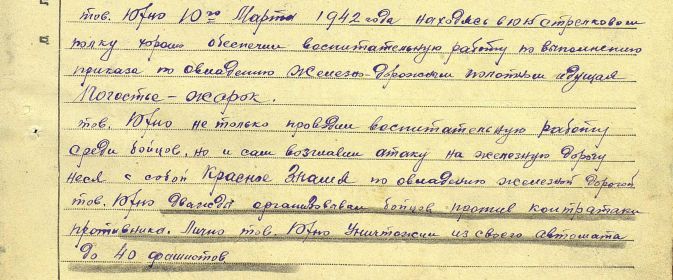 тов. Юфно 10го Марта 1942 года находясь в юн стрелковом
полку хорошо обеспечил воспитательную работу по выполнению
приказа по овладению железно-дорожным полотном идущая
Погостье – жарок.
тов. Юфно не только проводил воспитательную работу
среди бойцов, но и сам возглавил атаку на железную дорогу
неся с собой Красное Знамя по овладению железной дорогой
тов. Юфно дважды организовывал бойцов против контратаки
противника. Лично тов. Юфно уничтожил из своего автомата
до 40 фашистов